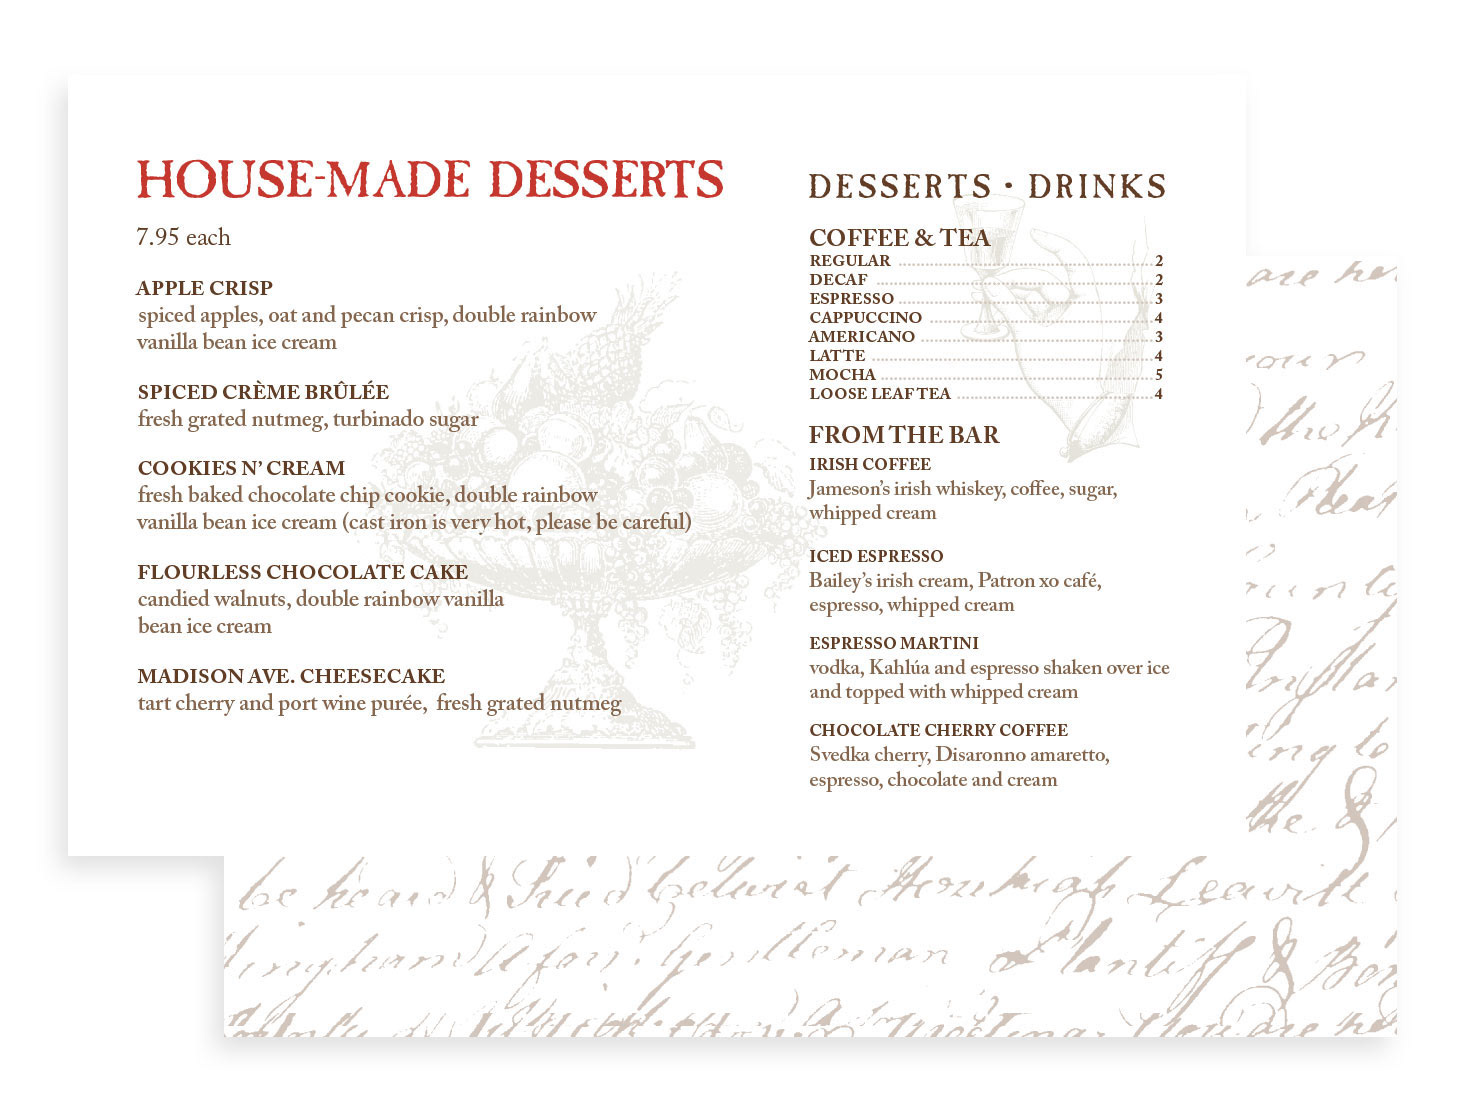 HOUSE-MADE DESSERTS
7.95 each
APPLE CRISP
spiced apples, oat and pecan crisp, double rainbow
vanilla bean ice cream
SPICED CRÈME BRÛLÉE
fresh grated nutmeg, turbinado sugar
COOKIES N' CREAM
fresh baked chocolate chip cookie, double rainbow
vanilla bean ice cream (cast iron is very hot, please be careful)
FLOURLESS CHOCOLATE CAKE
candied walnuts, double rainbow vanilla
bean ice cream
MADISON AVE. CHEESECAKE
tart cherry and port wine purée, fresh grated nutmeg
DESSERTS • DRINKS
COFFEE & TEA
REGULAR 2
DECAF 2
ESPRESSO 3
CAPPUCCINO 4
AMERICANO 3
LATTE 4
MOCHA 5
LOOSE LEAF TEA 4
FROM THE BAR
IRISH COFFEE
Jameson's irish whiskey, coffee, sugar,
whipped cream
ICED ESPRESSO
Bailey's irish cream, Patron xo café,
espresso, whipped cream
ESPRESSO MARTINI
vodka, Kahlúa and espresso shaken over ice
and topped with whipped cream
CHOCOLATE CHERRY COFFEE
Svedka cherry, Disaronno amaretto,
espresso, chocolate and cream
are
your
the
ing to
the &
be heard &
gentleman Plantiff &
are